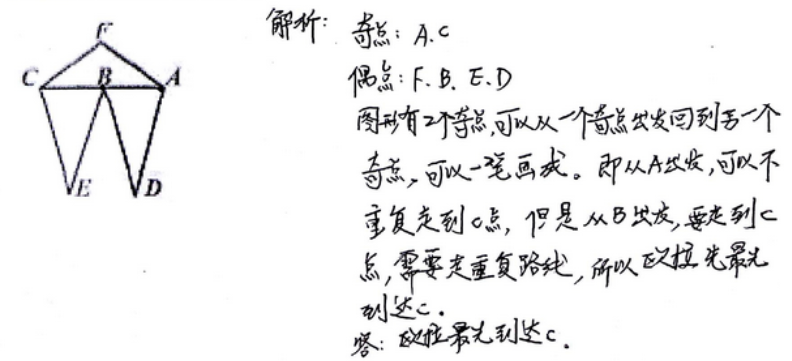 F
C
B
A
E
D
解析: 奇点: A.C
偶点: F.B.E.D
图形有2个奇点,可以从一个奇点出发回到另一个
奇点,可以一笔画成。即从A出发,可以不
重复走到C点,但是从B出发,要走到C
点,需要走重复路线,所以欧拉先最先
到达C.
答: 欧拉最先到达C.